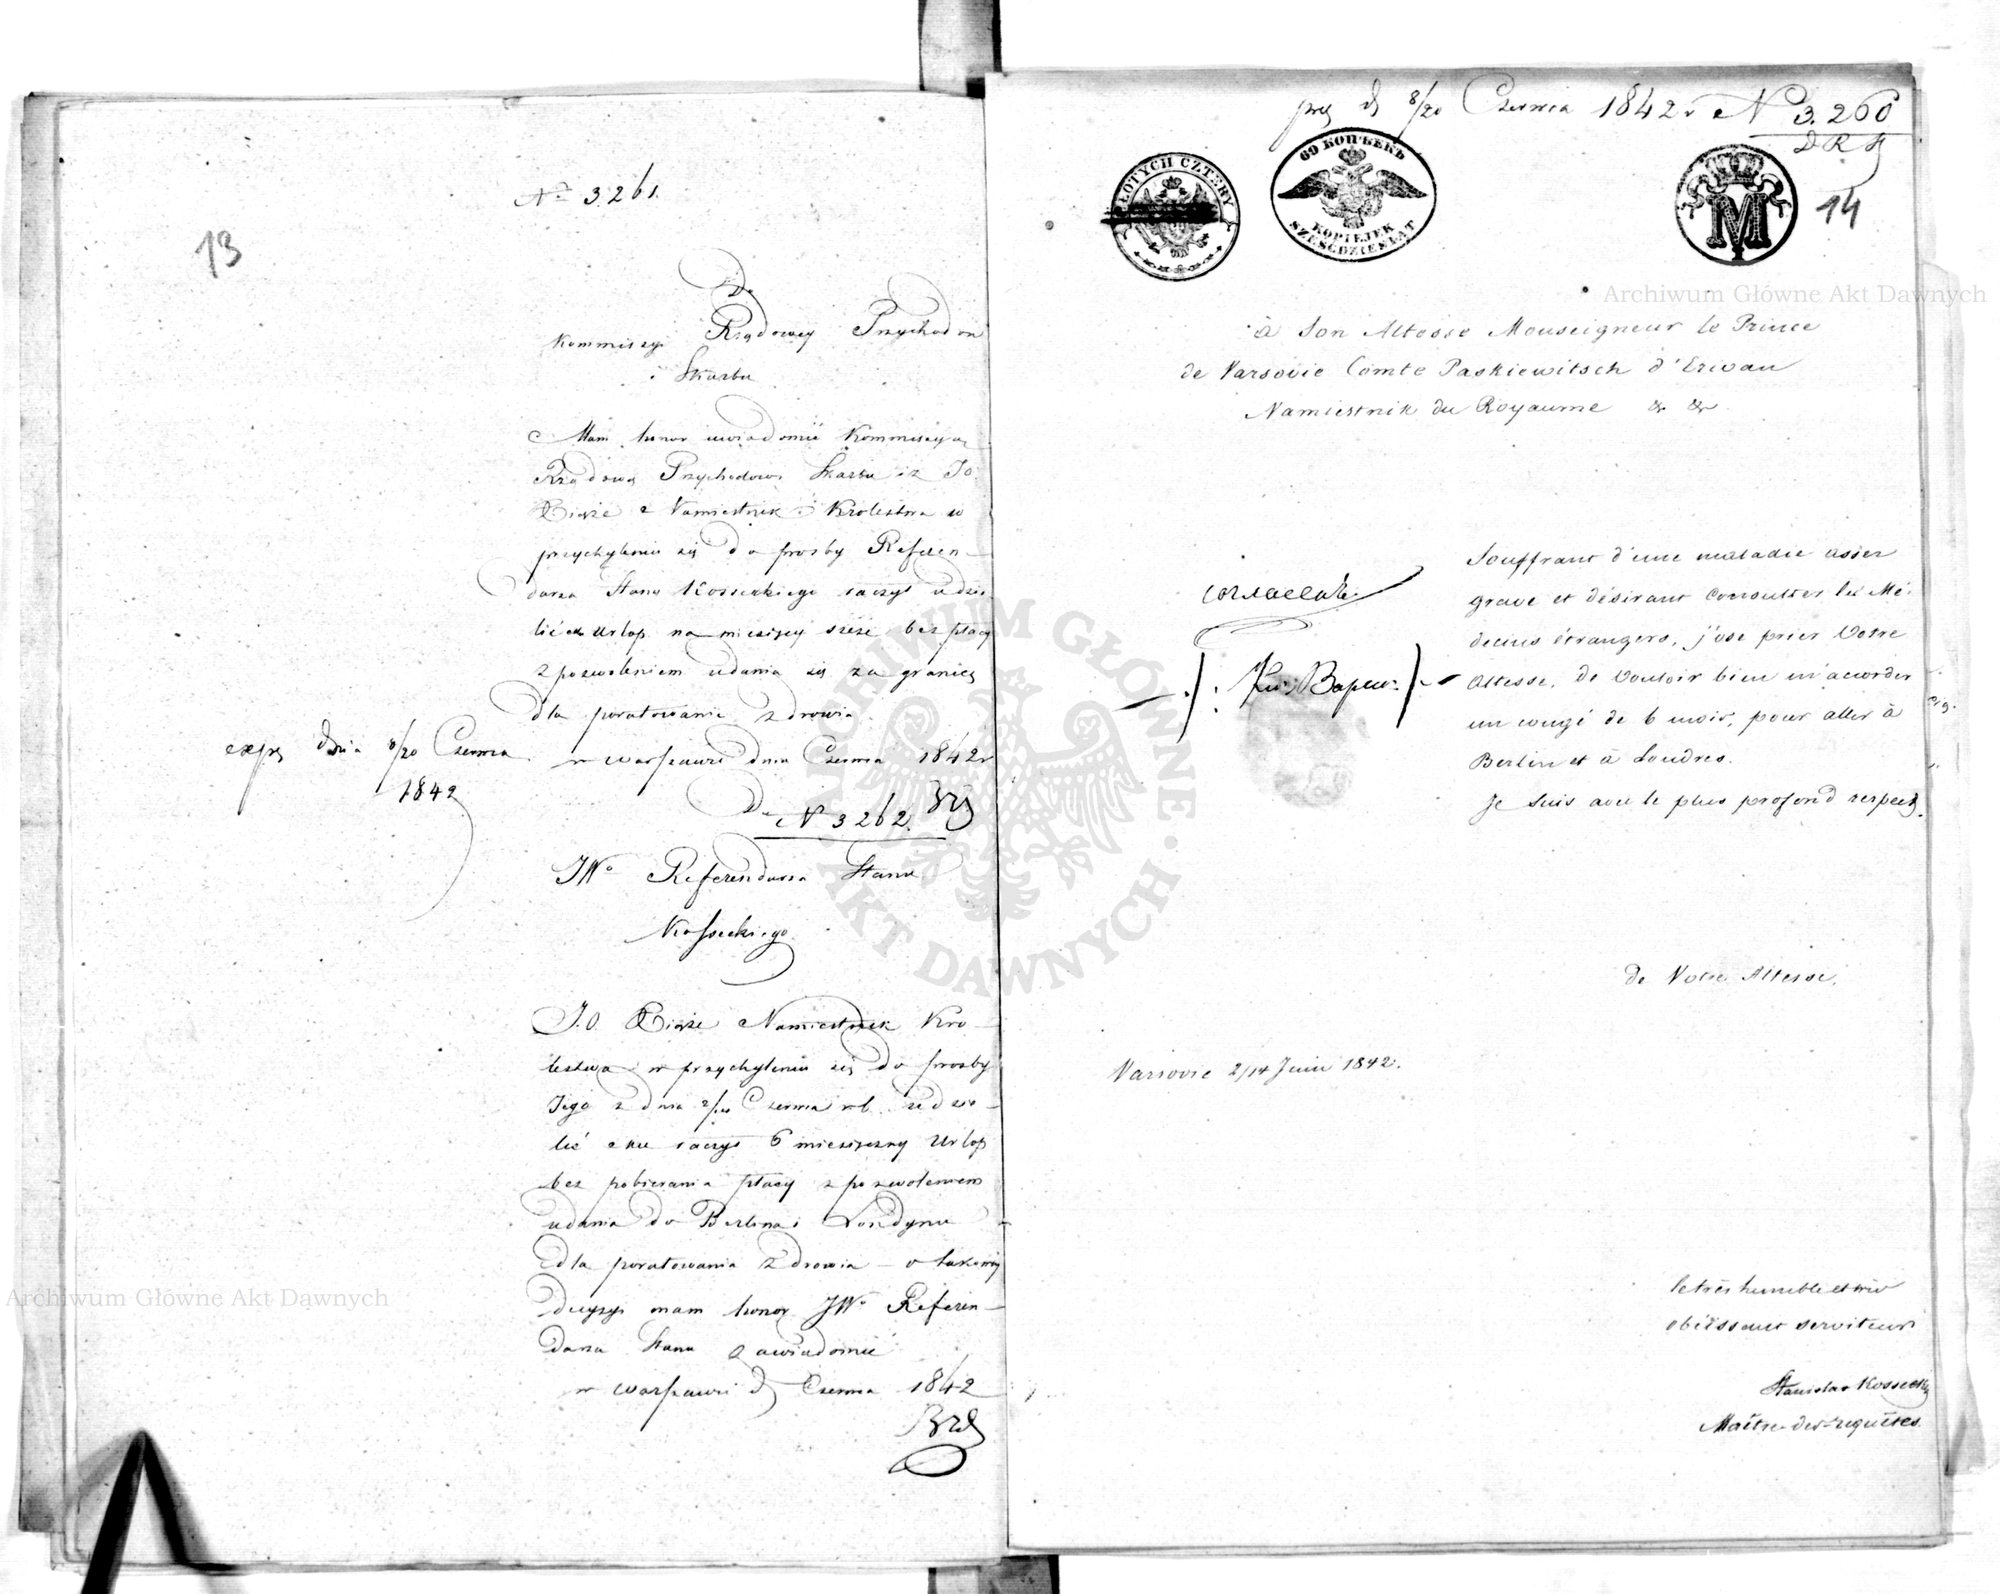 13
No 3.261.
Do
Kommissyi Rządowey Przychodow
i Skarbu
Mam honor uwiadomić Kommissyą
Rządową Przychodow Skarbu iż JO
Xiąże Namiestnik Królestwa w
przychyleniu się do prosby Referen-
darza Stanu Kosseckiego raczył udzie
lić Urlop na miesięcy sześć bez płacy
z pozwoleniem udania się za granicę
dla poratowania zdrowia
w Warszawie dnia Czerwca 1842 r
exp dnia 8/20 Czerwca
1842
Do N 3262.
JWo Referendarza Stanu
Kosseckiego.
J.O. Xiąże Namiestnik Kró-
lestwa w przychyleniu się do prosby
Jego z dnia 2/14 Czerwca r.b. udzie-
lić mu raczył 6 miesięczny Urlop
bez pobierania płacy z pozwoleniem
udania do Berlina i Londynu
dla poratowania zdrowia – o takowéy
decyzyi mam honor JWo Referen-
darza Stanu zawiadomić
w Warszawie d Czerwca 1842
prez d 8/20 Czerwca 1842 r N 3.260
14
ZŁOTYCH CZTERY
60 КОПѢЕКЪ
KOPIEJEK
SZEŚĆDZIESIĄT
M
à Son Altesse Monseigneur le Prince
de Varsovie Comte Paskiewitsch d'Erivan
Namiestnik du Royaume & &
Souffrant d'une maladie assez
grave et désirant consulter les Mé-
decins étrangers, j'ose prier Votre
Altesse, de vouloir bien m'accorder
un congé de 6 mois, pour aller à
Berlin et à Londres.
Je suis avec le plus profond respect,
согласенъ
de Votre Altesse,
Varsovie 2/14 Juin 1842.
le très humble et très
obéissant serviteur
Stanislas Kossecki
Maître-des-requêtes.
Archiwum Główne Akt Dawnych
Archiwum Główne Akt Dawnych
ARCHIWUM GŁÓWNE AKT DAWNYCH